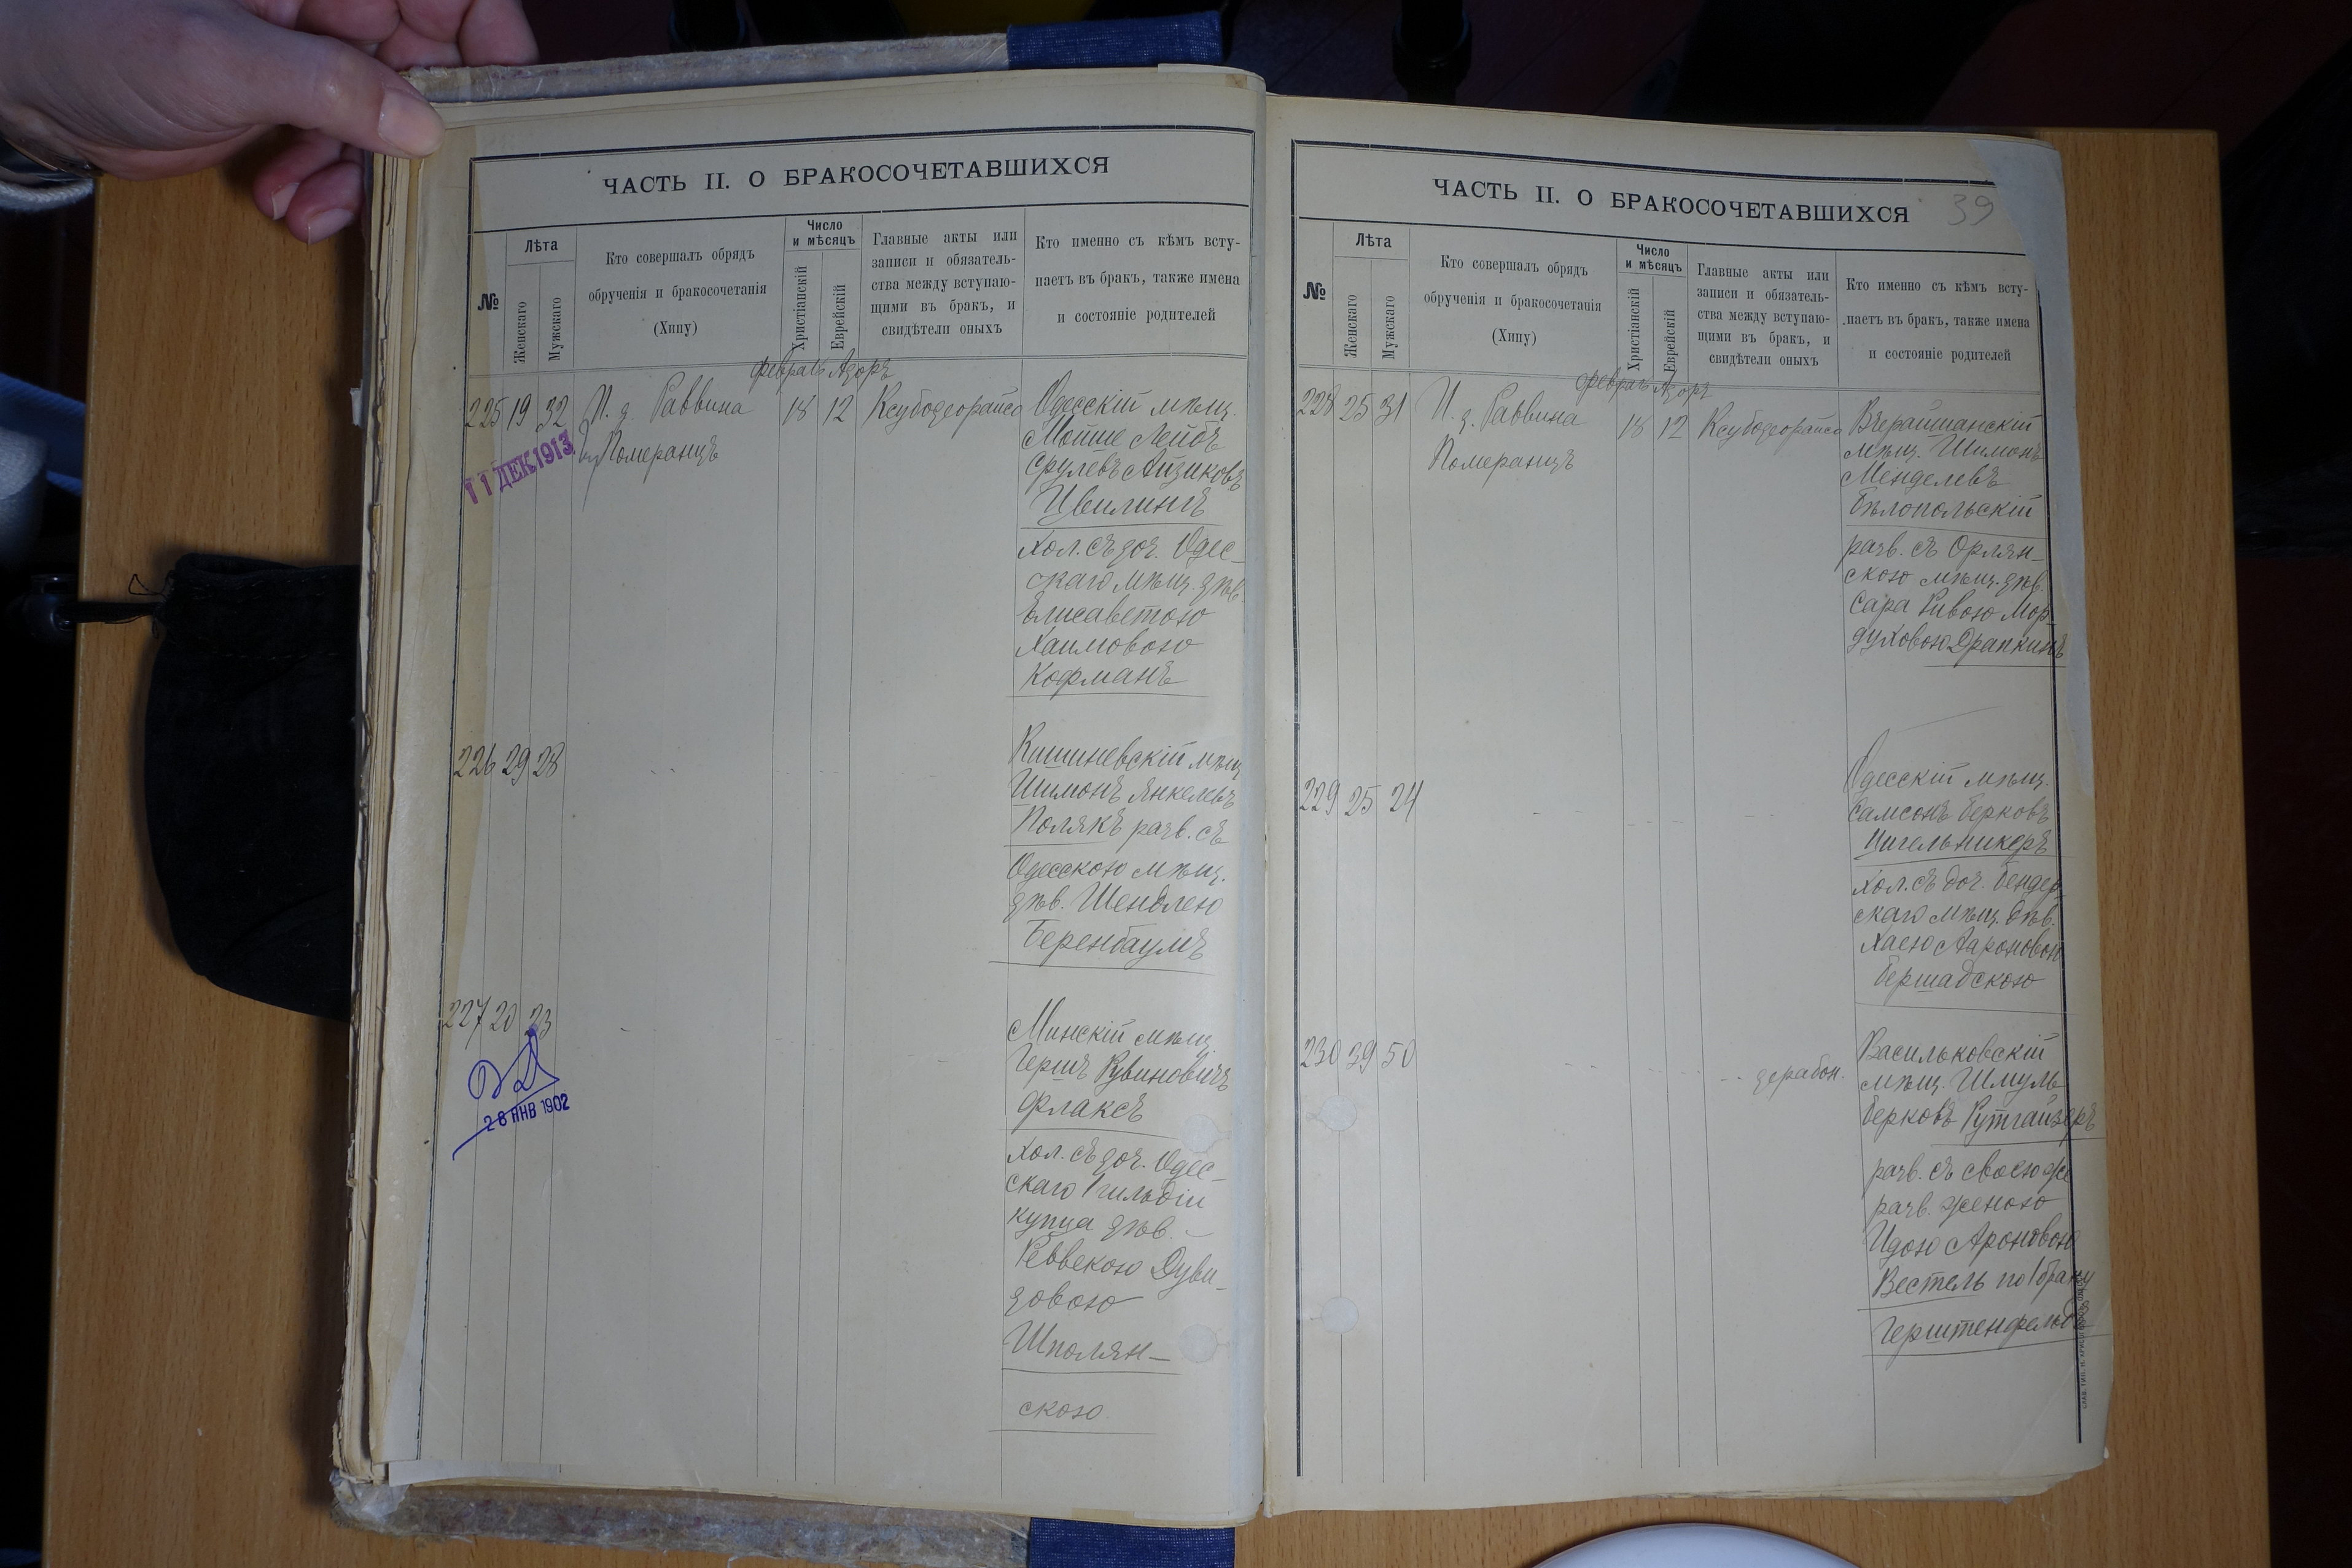 ЧАСТЬ II. О БРАКОСОЧЕТАВШИХСЯ
№
Лѣта
Женскаго
Мужскаго
Кто совершалъ обрядъ
обрученія и бракосочетанія
(Хипу)
Число
и мѣсяцъ
Христіанскій
Еврейскій
Главные акты или
записи и обязатель-
ства между вступаю-
щими въ бракъ, и
свидѣтели оныхъ
Кто именно съ кѣмъ всту-
паетъ въ бракъ, также имена
и состояніе родителей
февраль Адоръ
225 19 32 И. д. Раввина 18 12 Ксубодеорайсо
Померанцъ
11 ДЕК 1913
Одесскій мѣщ.
Мойше Лейбъ
Срулевъ Айзиковъ
Цвилингъ
хол. съ доч. Одес-
скаго мѣщ. дѣв.
Елисаветою
Хаимовою
Кофманъ
226 29 28
Кишиневскій мѣщ.
Шимонъ Янкелевъ
Полякъ разв. съ
Одесскою мѣщ.
дѣв. Шендлею
Беренбаумъ
227 20 23
28 ЯНВ 1902
Минскій мѣщ.
Гершъ Рувиновичъ
Флаксъ
хол. съ доч. Одес-
скаго 1 гильдіи
купца дѣв. -
Реввекою Дуви-
довою
Шполян-
скою
ЧАСТЬ II. О БРАКОСОЧЕТАВШИХСЯ
39
№
Лѣта
Женскаго
Мужскаго
Кто совершалъ обрядъ
обрученія и бракосочетанія
(Хипу)
Число
и мѣсяцъ
Христіанскій
Еврейскій
Главные акты или
записи и обязатель-
ства между вступаю-
щими въ бракъ, и
свидѣтели оныхъ
Кто именно съ кѣмъ всту-
паетъ въ бракъ, также имена
и состояніе родителей
февраль Адоръ
228 25 31 И. д. Раввина 18 12 Ксубодеорайсо
Померанцъ
Вчерайшанскій
мѣщ. Шимонъ
Менделевъ
Бѣлопольскій
разв. съ Орлян-
скою мѣщ. дѣв.
Сара Ривою Мор-
духовою Драпкинъ
229 25 24
Одесскій мѣщ.
Самсонъ Берковъ
Цигельникеръ
хол. съ доч. Бендер-
скаго мѣщ. дѣв.
Хаею Аароновою
Бершадскою
230 39 50
дерабон.
Васильковскій
мѣщ. Шмуль
Берковъ Рутгайзеръ
разв. съ своею же
разв. женою
Идою Ароновою
Вестель по 1 браку
Герштенфельдъ